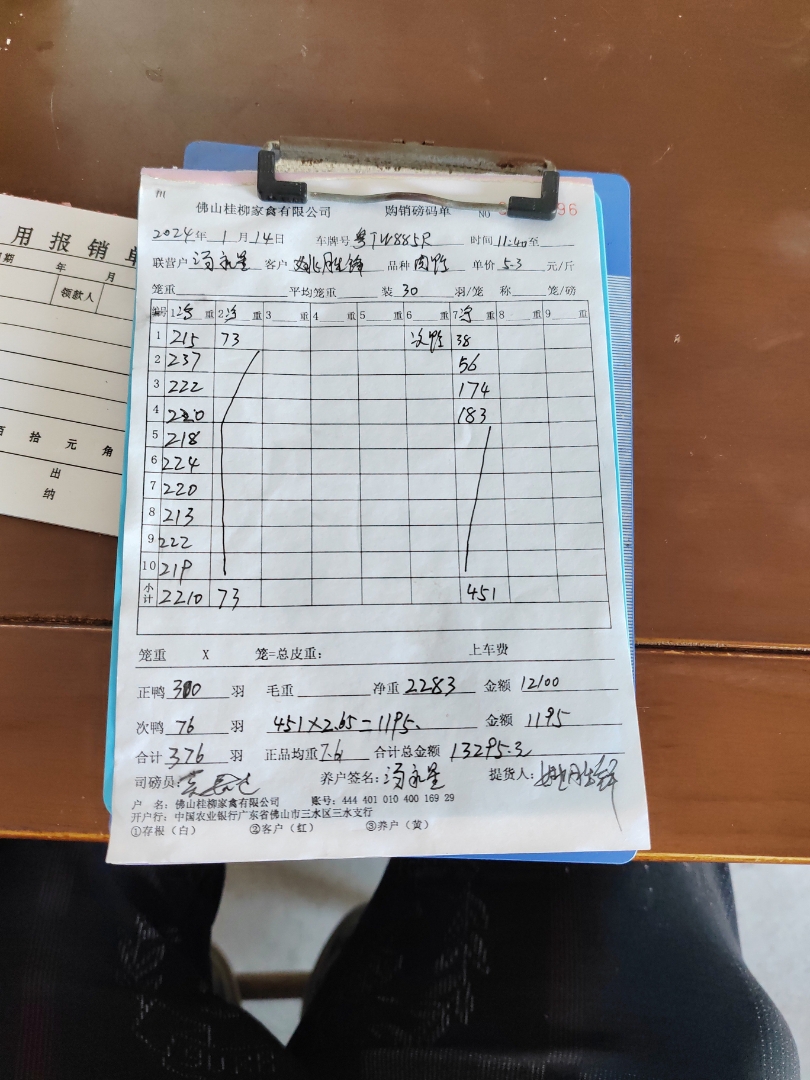 州
佛山桂柳家禽有限公司 购销磅码单 NO 96
2024年 1月 14日 车牌号 粤TW885R 时间 11:40 至
联营户 汤永星 客户 姚胜锋 品种 肉鸭 单价 5.3 元/斤
笼重 平均笼重 装 30 羽/笼 称 笼/磅
编号 1净重 2净重 3 重 4 重 5 重 6 重 7净重 8 重 9 重
1 215 73 次鸭 38
2 237 56
3 222 174
4 220 183
5 218
6 224
7 220
8 213
9 222
10 219
小计 2210 73 451
笼重 X 笼=总皮重: 上车费
正鸭 300 羽 毛重 净重 2283 金额 12100
次鸭 76 羽 451×2.65=1195. 金额 1195
合计 376 羽 正品均重 7.6 合计总金额 13295.2
司磅员: 养户签名: 汤永星 提货人: 姚胜锋
户 名: 佛山桂柳家禽有限公司 账号: 444 401 010 400 169 29
开户行: 中国农业银行广东省佛山市三水区三水支行
①存根(白) ②客户(红) ③养户(黄)
用报销单
年 月
领款人
拾 元 角
出
纳